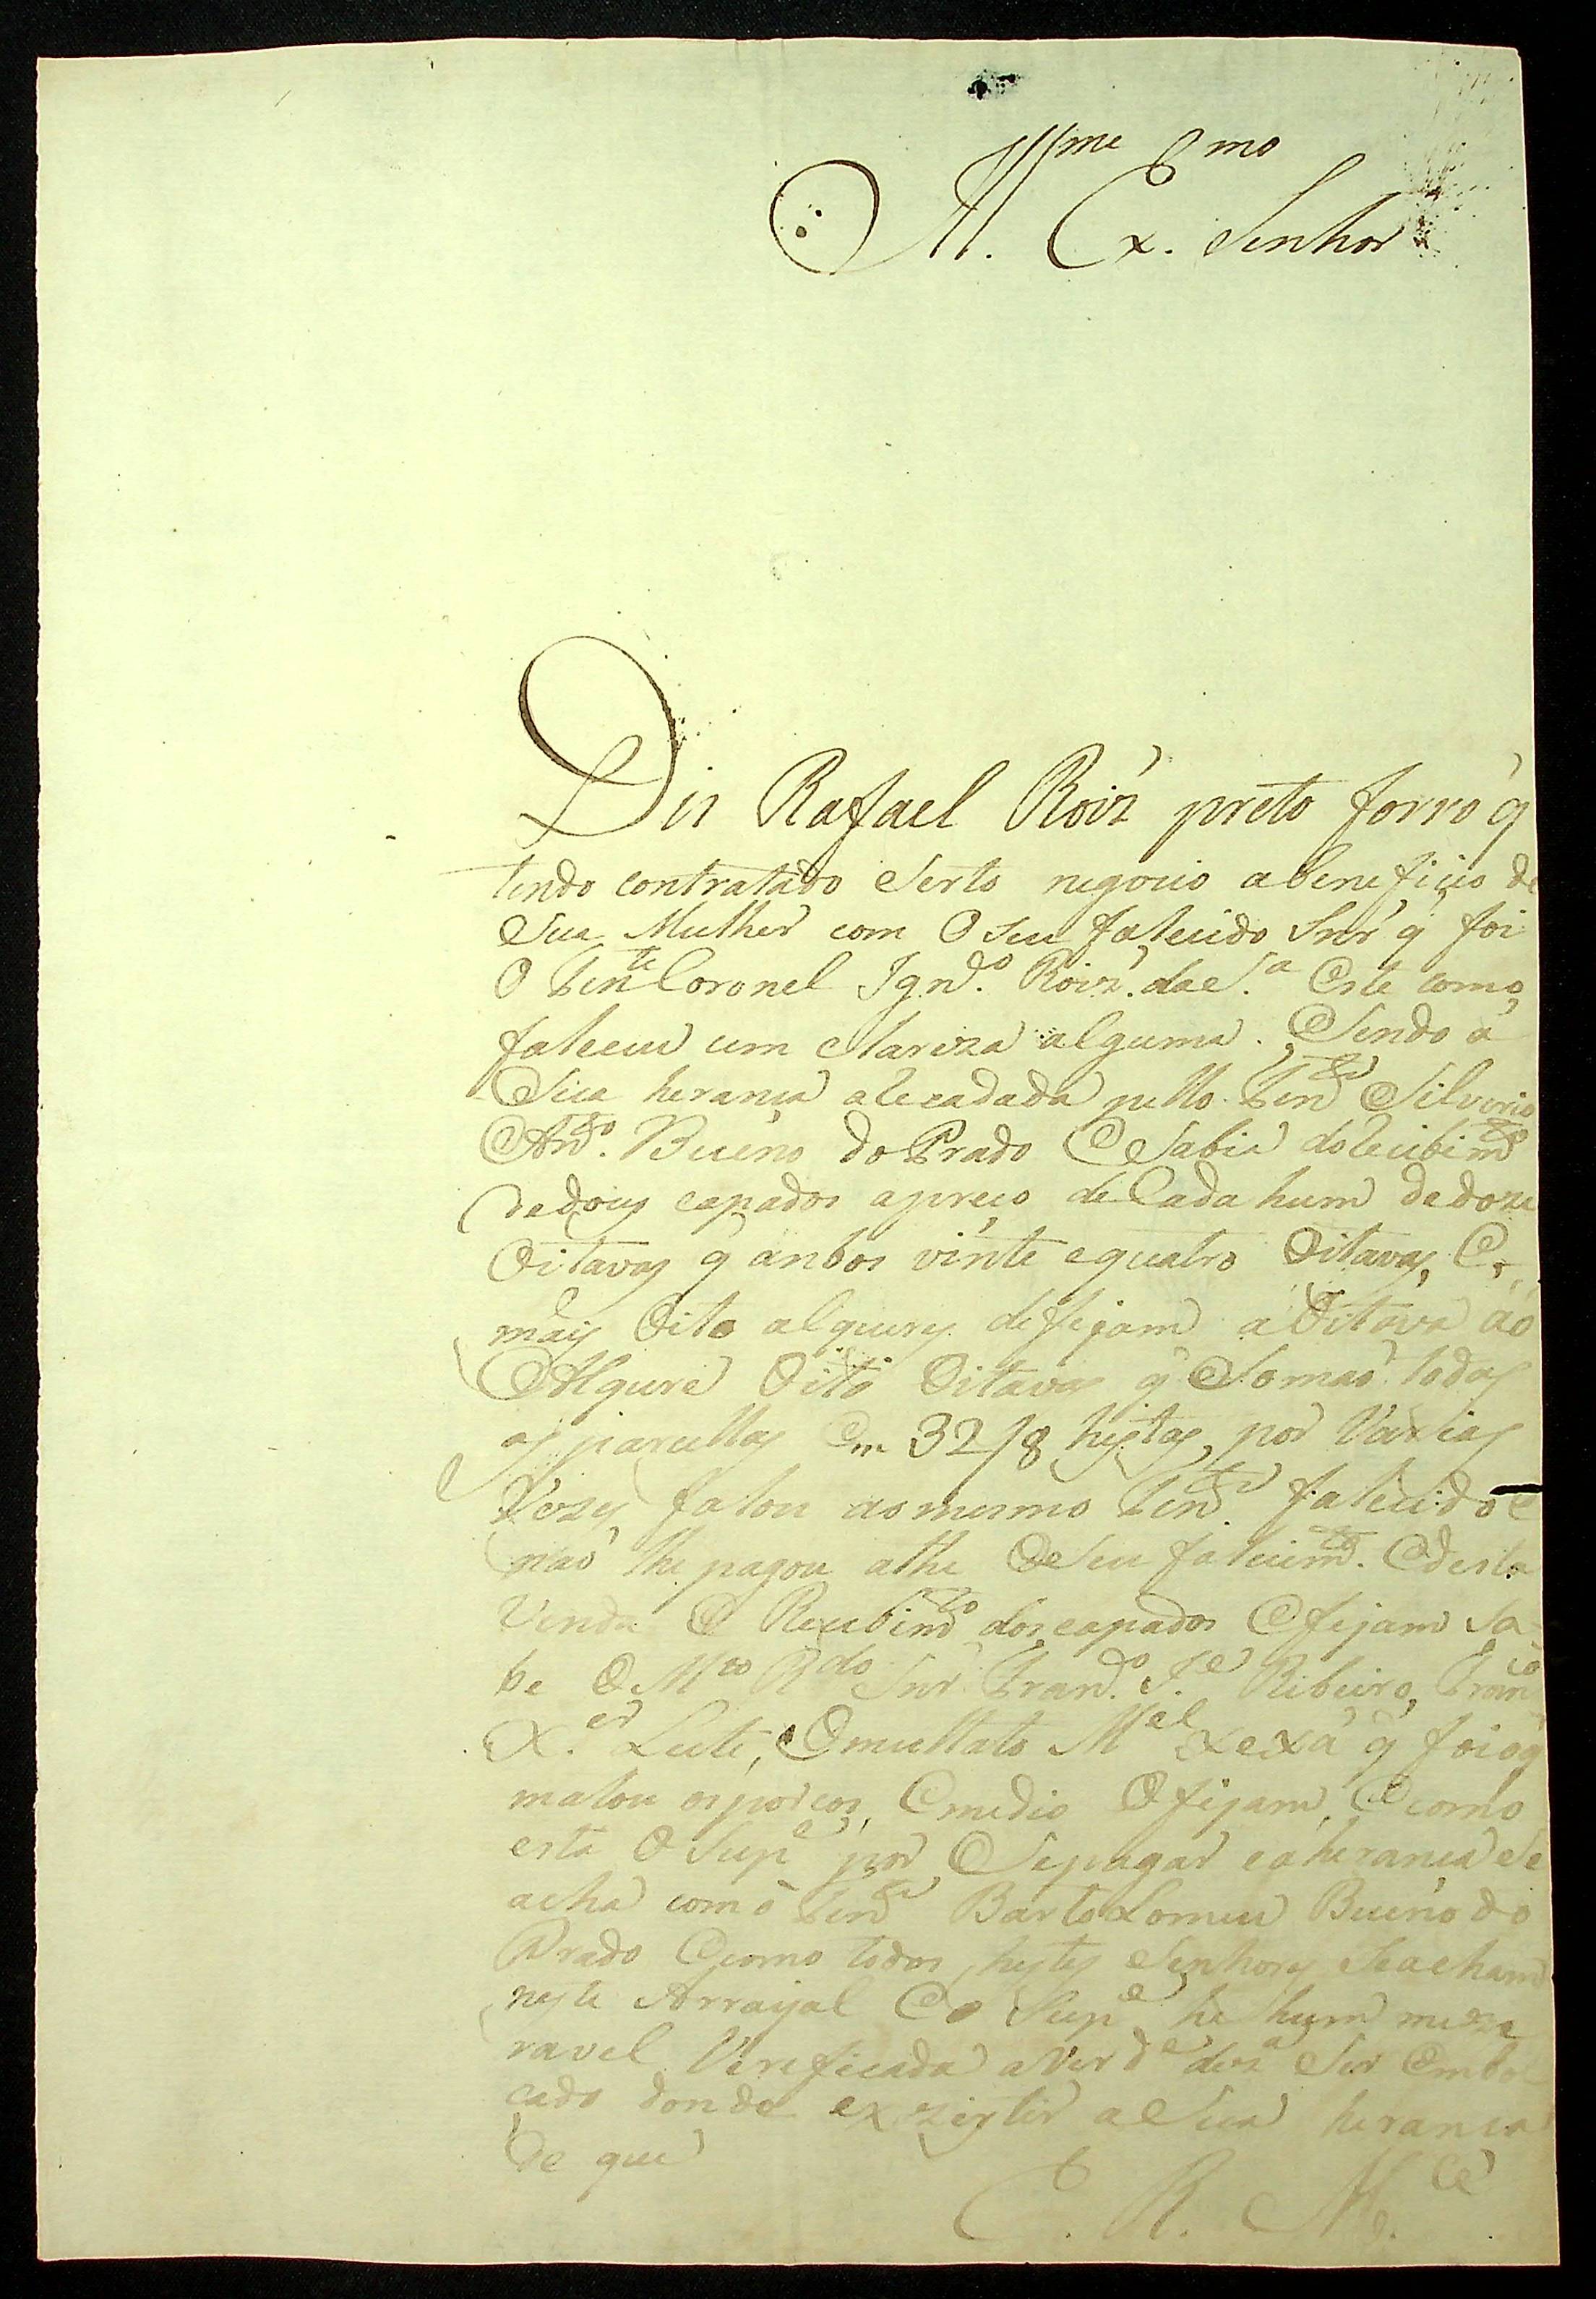 Ill.me Ex.mo Senhor
Dis Rafael Roiz' preto forro q'
tendo contratado Serto negocio abeneficio de
Sua Mulher com O seu falecido Snr' q' foi
O Ten.te Coronel Ign.do Roiz'. da S.a Este como
faleceu cem Clareza alguma. Sendo a
Sua herança alecadada pello Ten.te Silverio
An.to Bueno do Prado E Sabia do lecebim.to
de dous capados apreco de Cada hum de doze
Oitavas q' anbos vinte equatro Oitavas, E
mais Oito alqueres defejam a Oitava ao
Alquere Oito Oitavas q' Somaõ todas
as parcellas Em 32/8 hestas, por Varias
Vezes falou ao mesmo Ten.te falecido e
naõ lhe pagou athe O Seu falecim.to E desta
Venda E Recebim.to dos capados E fejam Sa-
be O M.to R.do Snr' Fran.co J.e Ribeiro, Fran.co
X.er Leite, O mullato M.el xexa q' foi o q'
matou os porcos, E medio O fejam, E como
esta O Sup.e por Se pagar e a herança Se
acha com o Ten.te Bartolomeu Bueno do
Prado E como todos hestes Senhores Se acham
neste Arrayal E o Sup.e he hum meze
ravel Verificada a Verd.e deza Ser Embol
cado donde exzistir a Sua herança
de que
E. R. M.ce